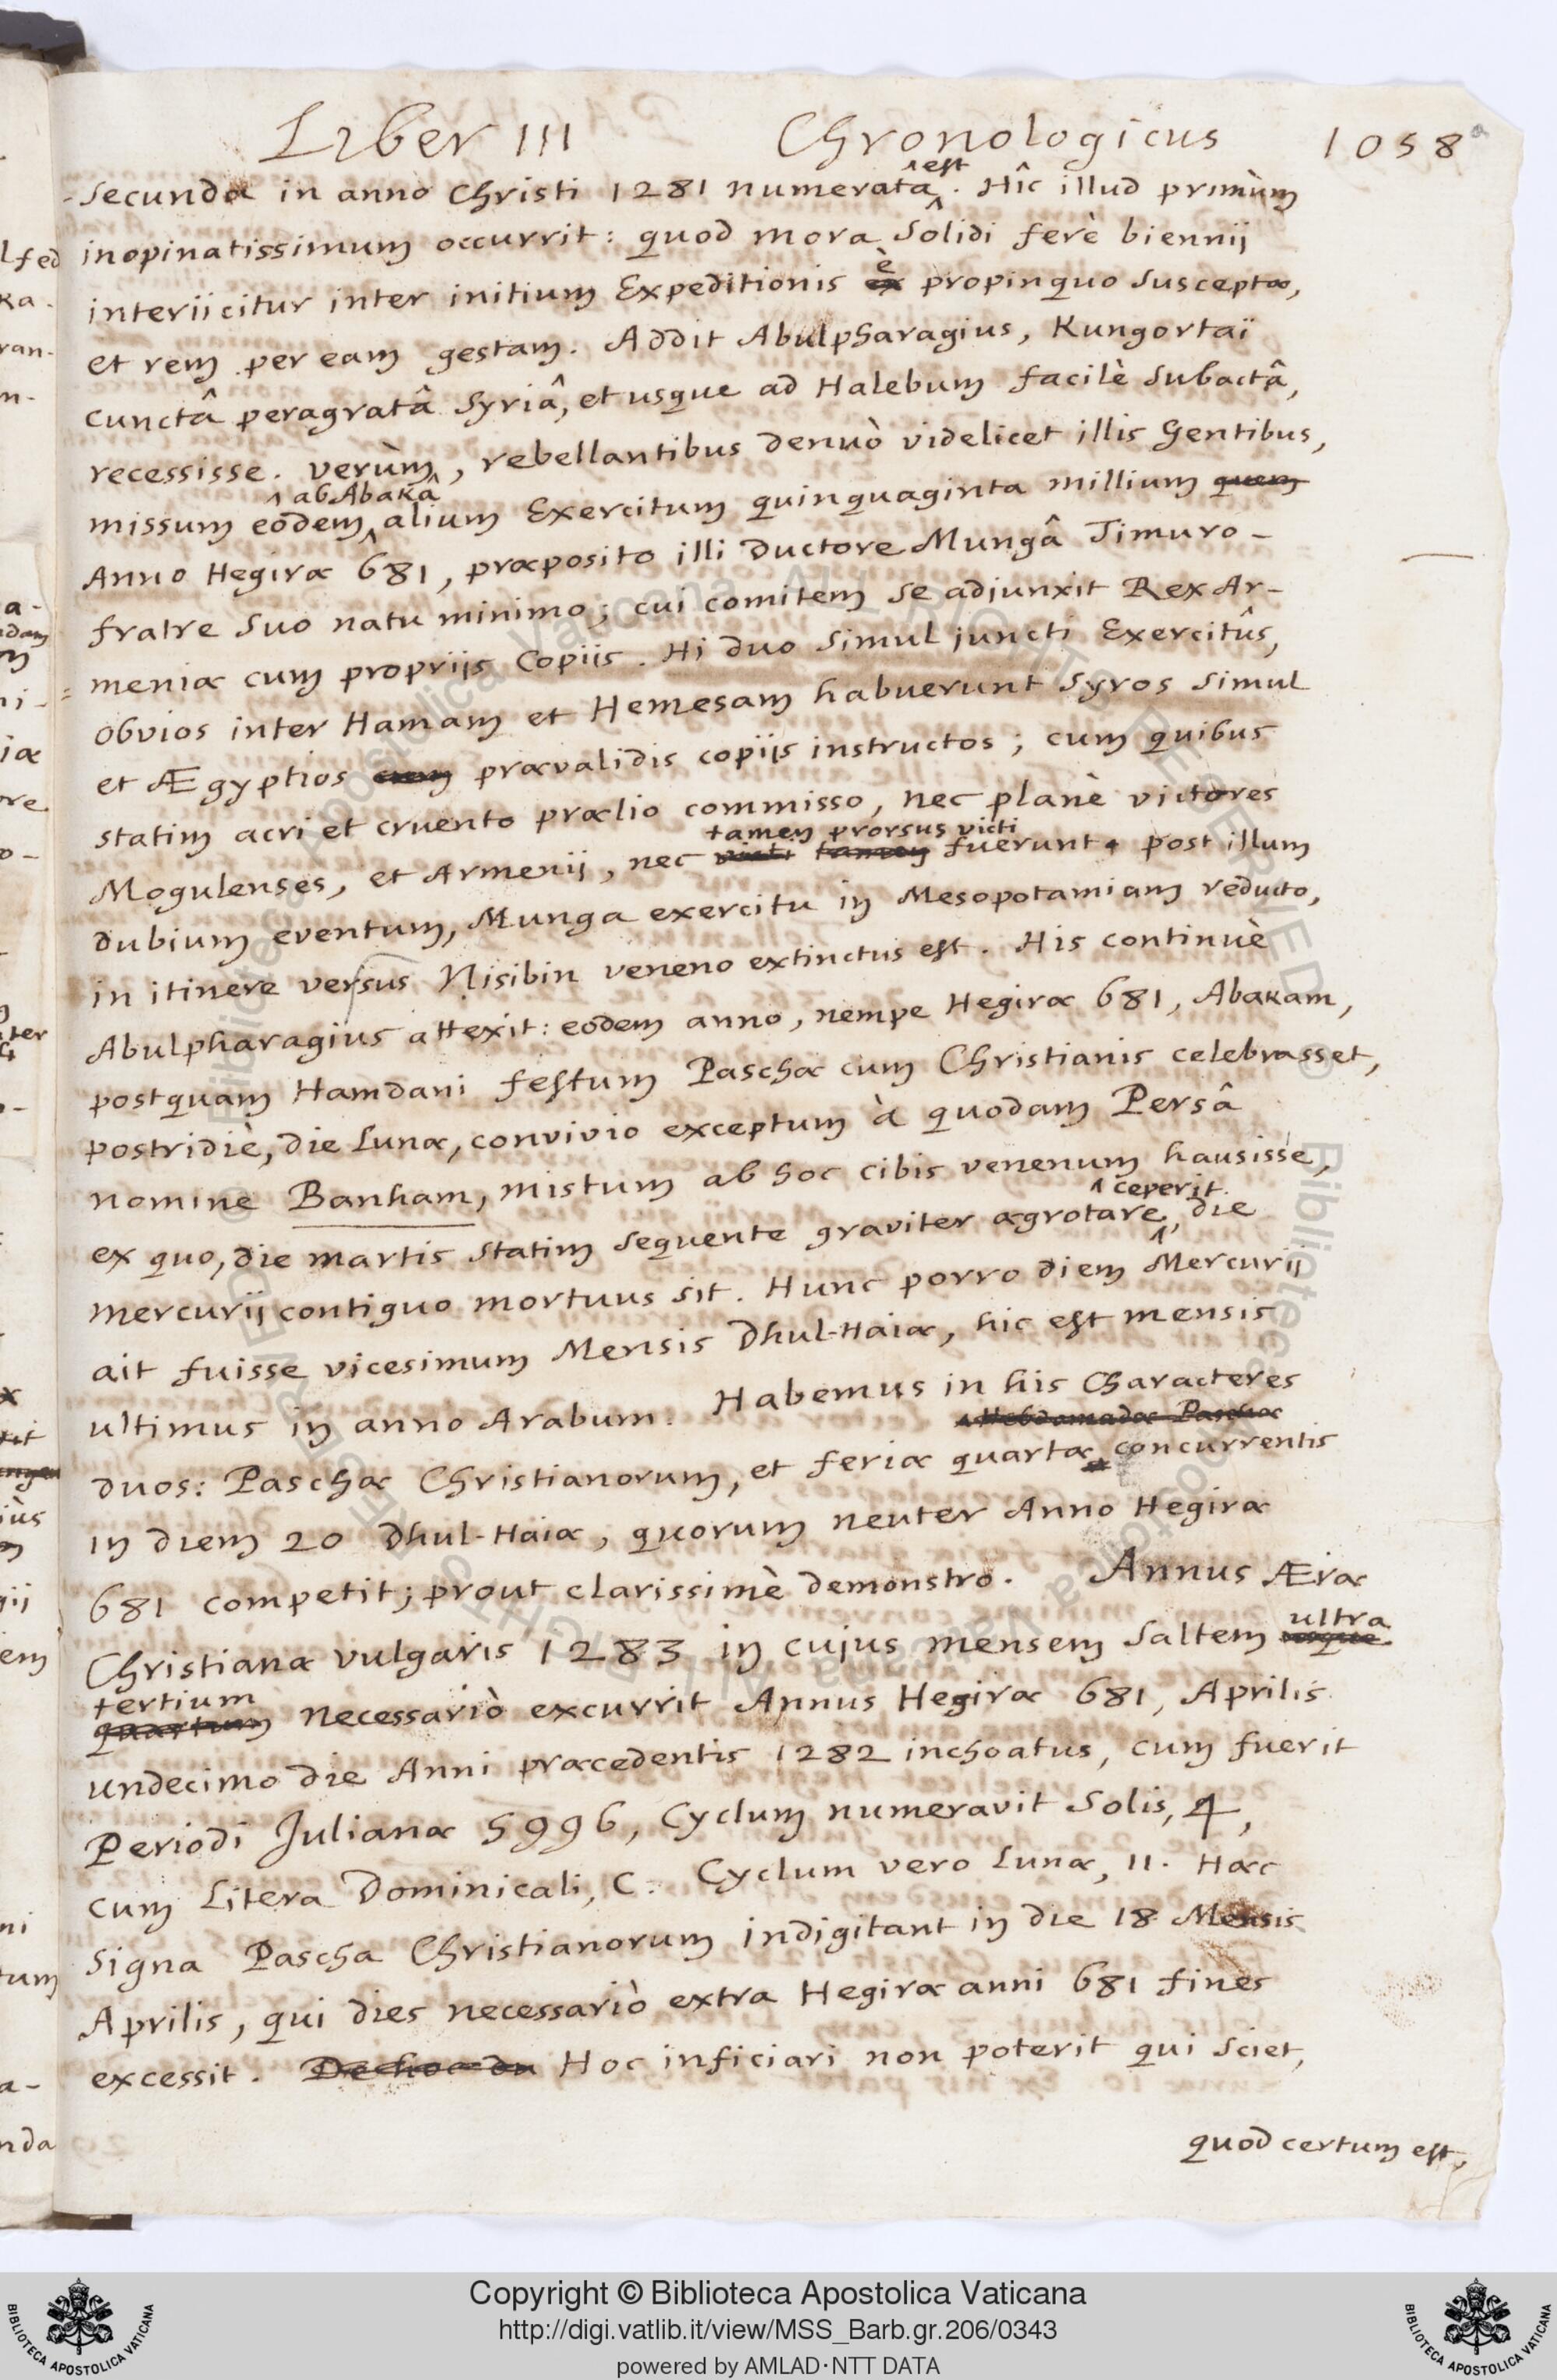 Liber III Chronologicus 1058a
-secundæ in anno Christi 1281 numeratâ est. Hîc illud primùm
inopinatissimum occurrit: quod mora solidi ferè biennij
interiicitur inter initium Expeditionis ex è propinquo susceptæ,
et rem per eam gestam. Addit Abulpharagius, Kungortaï
cunctâ peragratâ Syriâ, et usque ad Halebum facilè subactâ,
recessisse. verùm, rebellantibus denuò videlicet illis Gentibus,
missum eôdem ab Abakâ alium Exercitum quinquaginta millium quem
Anno Hegiræ 681, præposito illi ductore Mungâ Timuro-
fratre suo natu minimo; cui comitem se adjunxit Rex Ar-
meniæ cum proprijs Copiis. Hi duo simul juncti Exercitûs,
obvios inter Hamam et Hemesam habuerunt Syros simul
et Ægyptios cum prævalidis copijs instructos; cum quibus
statim acri et cruento prælio commisso, nec planè victores
Mogulenses, et Armenij, nec victi tamen tamen prorsus victi fuerunt. post illum
dubium eventum, Munga exercitu in Mesopotamiam reducto,
in itinere versus Nisibin veneno extinctus est. His continuè
Abulpharagius attexit: eôdem anno, nempe Hegiræ 681, Abakam,
postquam Hamdani festum Paschæ cum Christianis celebrasset,
postridiè, die Lunæ, convivio exceptum à quodam Persâ
nomine Banham, mistum ab hoc cibis venenum hausisse,
ex quo, die martis statim sequente graviter ægrotare ceperit, die
mercurij contiguo mortuus sit. Hunc porro diem Mercurij
ait fuisse vicesimum Mensis Dhul-Haiæ, hic est mensis
ultimus in anno Arabum. Habemus in his Characteres
duos: Paschæ Christianorum, et feriæ quartæ Hebdomadæ Paschæ concurrentis
in diem 20 Dhul-Haiæ, quorum neuter Anno Hegiræ
681 competit; prout clarissimè demonstro. Annus Æræ
Christianæ vulgaris 1283 in cujus mensem saltem usque ultra
quartum tertium necessariò excurrit Annus Hegiræ 681, Aprilis
undecimo die Anni præcedentis 1282 inchoatus, cum fuerit
Periodi Julianæ 5996, Cyclum numeravit Solis, 4,
cum Litera Dominicali, C. Cyclum vero Lunæ, 11. Hæc
signa Pascha Christianorum indigitant in die 18 Mensis
Aprilis, qui dies necessariò extra Hegiræ anni 681 fines
excessit. De hoc Hoc inficiari non poterit qui sciet,
quod certum est,
Copyright © Biblioteca Apostolica Vaticana
http://digi.vatlib.it/view/MSS_Barb.gr.206/0343
powered by AMLAD·NTT DATA
BIBLIOTECA APOSTOLICA VATICANA
BIBLIOTECA APOSTOLICA VATICANA